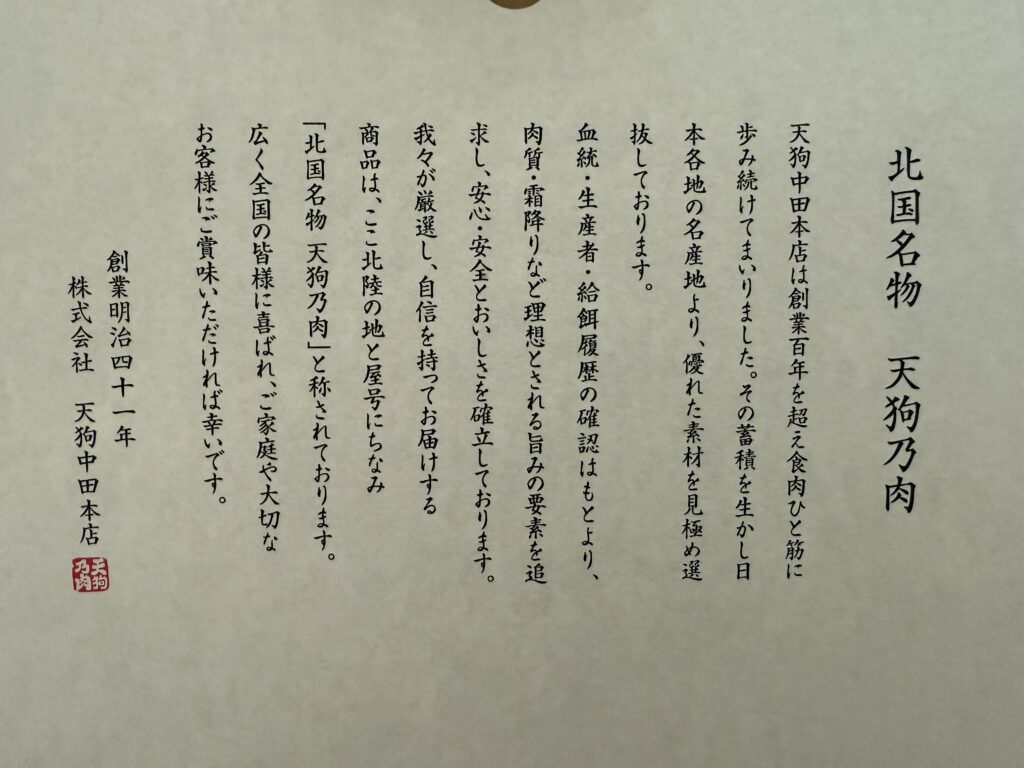 北国名物　天狗乃肉
天狗中田本店は創業百年を超え食肉ひと筋に
歩み続けてまいりました。その蓄積を生かし日
本各地の名産地より、優れた素材を見極め選
抜しております。
血統・生産者・給餌履歴の確認はもとより、
肉質・霜降りなど理想とされる旨みの要素を追
求し、安心・安全とおいしさを確立しております。
我々が厳選し、自信を持ってお届けする
商品は、ここ北陸の地と屋号にちなみ
「北国名物 天狗乃肉」と称されております。
広く全国の皆様に喜ばれ、ご家庭や大切な
お客様にご賞味いただければ幸いです。
創業明治四十一年
株式会社　天狗中田本店
天狗
乃肉